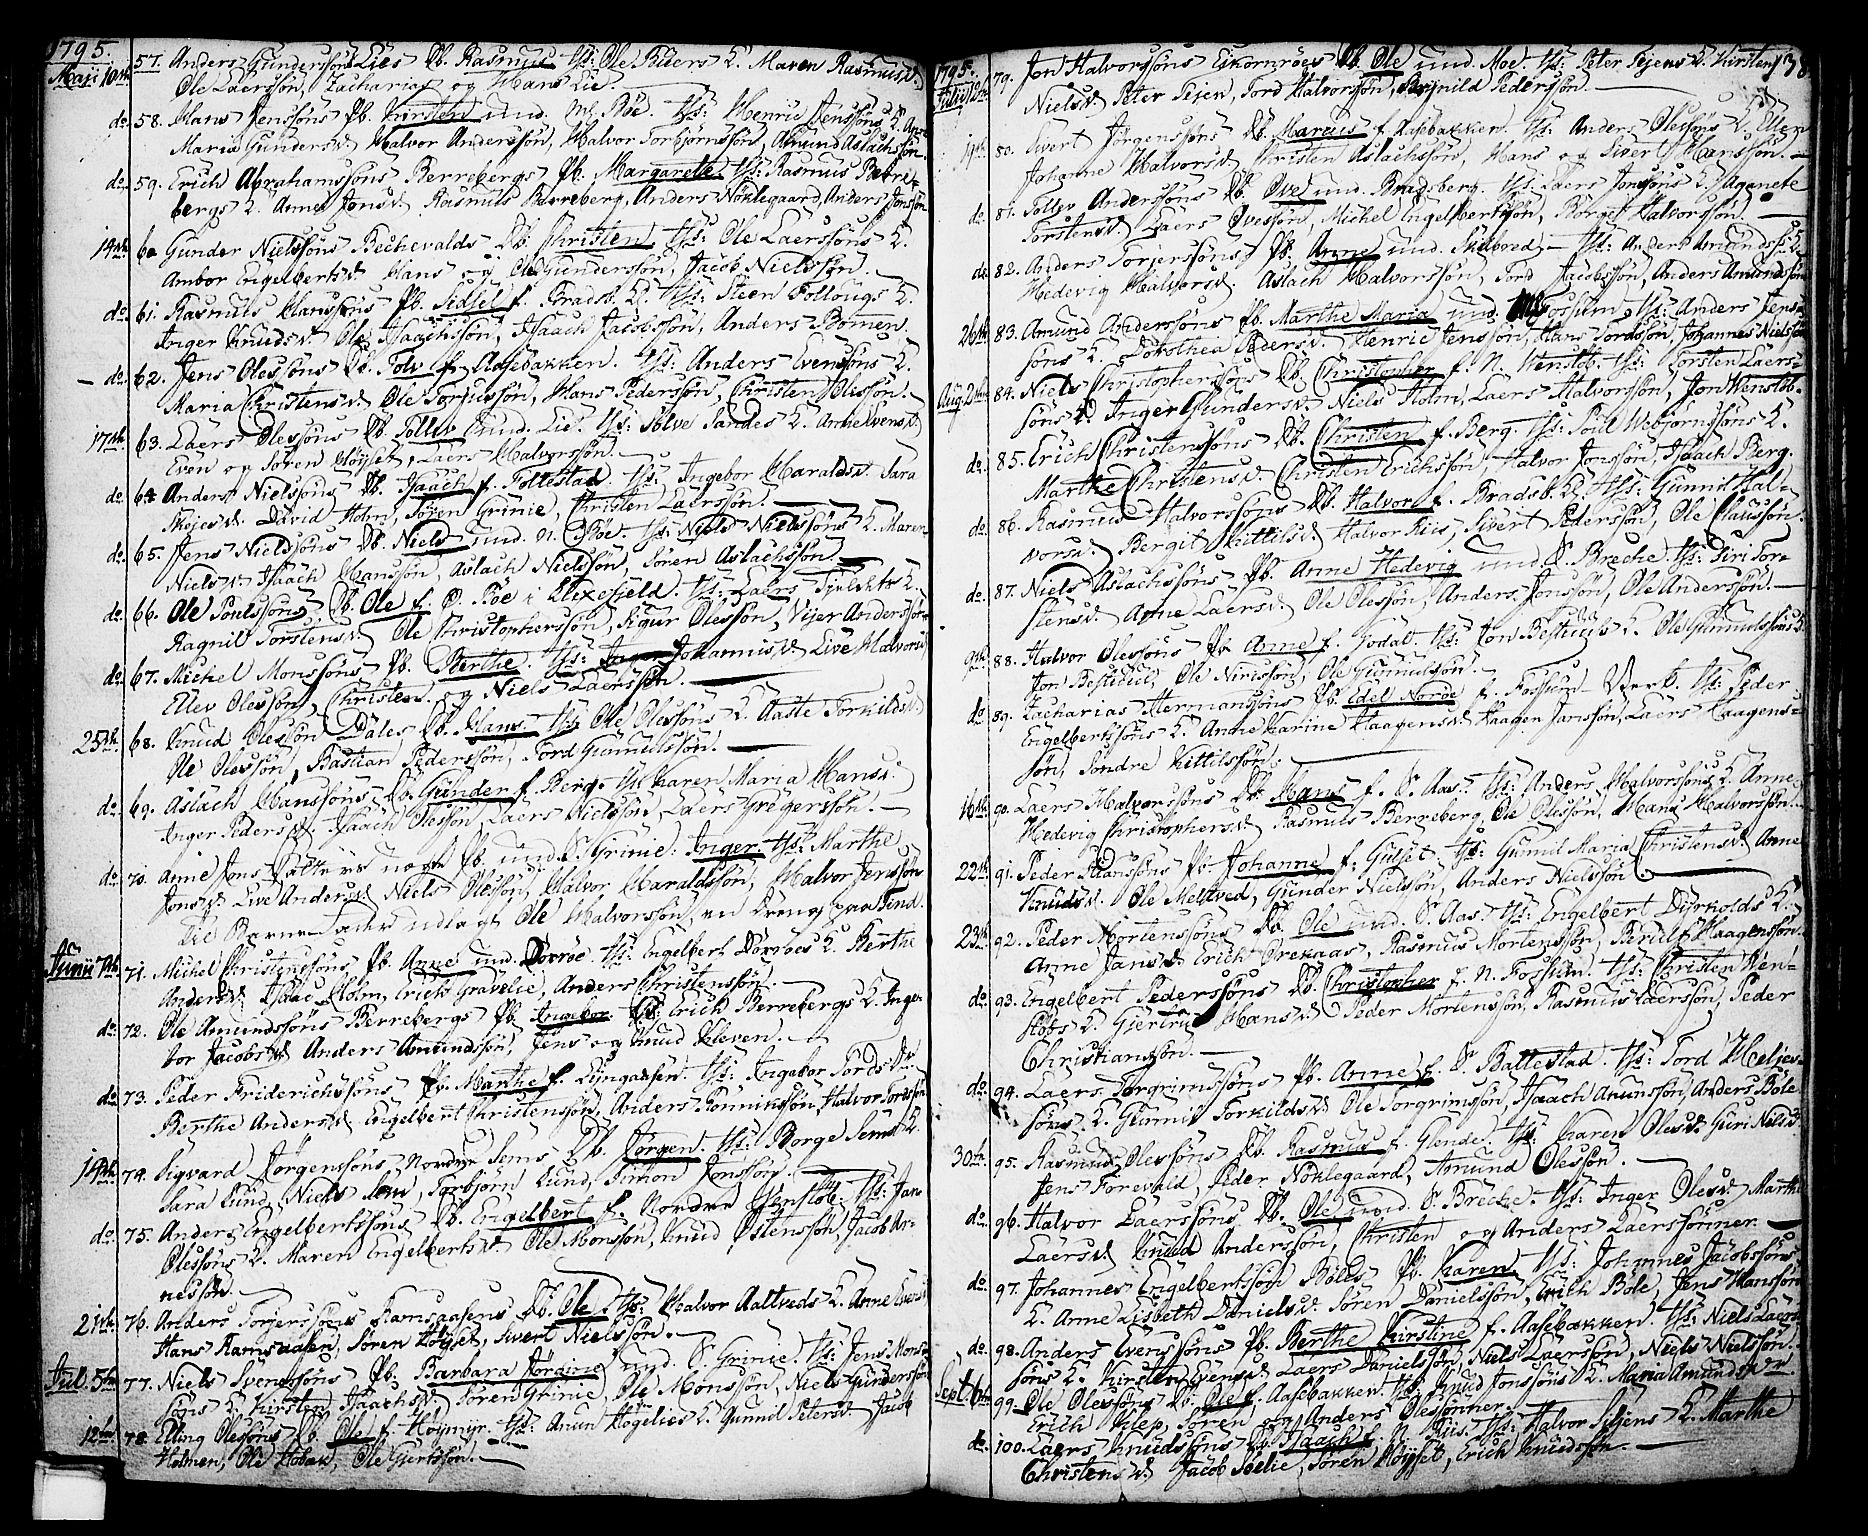 1795.
Maji 10de 57. Anders Gundersøns Lies Db. Rasmus. Ts: Ole Bués K. Maren Rasmusd.
Ole Laersson, Zacharias og Hans Lie.
do. 58. Hans Jenssøns Pb. Kirsten und. Bøe. Ts: Henric Jenssøns K. Anne
Maria Gundersd. Halvor Anderssøn, Halvor Torbjørnssøn, Amund Aslachsøn.
do. 59. Erich Abrahamssøns Berrebergs Pb. Margarethe. Ts: Rasmus Berre-
bergs K. Anne Jonsd. Rasmus Berreberg, Anders Nøklegaard, Anders Jonssøn
14de 60 Gunder Nielssøns Bechevalds Db. Christen. Ts: Ole Laerssøns K.
Ambor Engelbertsd. Hans og Ole Gunderssøn, Jacob Nielssøn.
do. 61. Rasmus Hanssøns Pb. Sidsel f. Bradsb. K. Ts: Steen Follougs K.
Inger Knudsd. Ole Isaachssøn, Isaach Jacobssøn, Anders Bomen.
do. 62. Jens Olessøns Db. Tolv f. Aasebakken. Ts: Anders Evenssøns K.
Maria Christensd. Ole Torjussøn, Hans Pederssøn, Christen Olessøn.
17de 63. Laers Olessøns Db. Tollev und. Lie. Ts: Sølve Sandes K. Anne Evensd.
Even og Søren Høyset, Laers Halvorssøn.
do. 64 Anders Nielssøns Db. Isaach f. Follestad. Ts: Ingebor Haraldsd. Sara
Skejesd. David Holm, Søren Grinie, Christen Laerssøn.
do. 65. Jens Nielssøns Db. Niels und. n. Bøe. Ts: Niels Nielssøns K. Maren
Nielsd. Isaach Hanssøn, Aslach Nielssøn, Søren Aslachssøn.
do. 66. Ole Poulssøns Db. Ole f. S. Bøe i Slixefjeld. Ts: Laers K.
Ragnil Torstensd. Ole Christopherssøn, Sigur Olessøn, Vijer Anderssøn.
do. 67. Michel Monssøns Pb. Berthe. Ts: Johannisd. Live Halvorsd
Ellev Olessøn, Christen og Niels Laerssøn.
25de 68. Knud Olessøn Dales Db. Hans. Ts: Ole Olessøns K. Aaste Torkildsd.
Ole Olessøn, Bastian Pederssøn, Tord Gunnulssøn.
do. 69. Aslach Hanssøns Db. Gunder f. Berg. Ts: Karen Maria Hansd.
Inger Pedersd. Isaach Olessøn, Laers Nielssøn, Laers Gregerssøn.
do. 70. Anne Jons Datters uægte Pb. und. S. Grinie. Inger. Ts: Marthe
Jonsd. Live Andersd. Niels Olessøn, Halvor Haraldssøn, Halvor Jenssøn
Til Barne-Fader udlagt Ole Halvorssøn, en Dreng paa Lund.
Junii 7de 71. Michel Christenssøns Pb. Anne und. Dørrøe. Ts: Engelbert Dørrøes K. Berthe
Andersd. Isaac Holm, Erich Gravelie, Anders Christenssøn.
do. 72. Ole Amundssøns Berrebergs Pb. Ingebor. Ts: Erich Berrebergs K. Inge-
bor Jacobsd. Anders Amundssøn, Jens og Knud Kleven.
do. 73. Peder Friderichssøns Pb. Marthe f. Lyngaasen. Ts: Ingebor Tordsd.
Berthe Andersd. Engelbert Christenssøn, Anders Gunnikssøn, Halvor Tordssøn
14de 74. Sigvard Jørgenssøns Nordre Sems Db. Jørgen. Ts: Børge Sems K.
Sara Lund, Niels Sem, Torbjørn Lund, Simon Jonssøn.
do. 75. Anders Engelbertssøns Db. Engelbert f. Nordre Wenstøb. Ts: Jan
Olessøns K. Maren Engelbertsd. Ole Monssøn, Knud Østenssøn, Jacob Ar-
nessøn.
21de 76. Anders Torjerssøns Ramsaasens Db. Ole. Ts: Halvor Aaltveds K. Anne Evensd.
Hans Ramsaasen, Søren Høyset, Sivert Nielssøn.
Jul. 5te 77. Niels Svenssøns Pb. Barbara Jørgine und. S. Grinie. Ts: Jens Mons-
søns K. Kirsten Isaachsd. Søren Grinie, Ole Monssøn, Niels Gunderssøn
12te 78. Elling Olessøns Db. Ole f. Høymyr. Ts: Anun Høgelies K. Gunnil Petersd. Jacob
Holmen, Ole Hobæk, Ole Giertssøn.
1795. 138
Julii 12te 79. Jon Halvorssøns Eikornrøes Db. Ole und. Moe. Ts: Peter Pejens K. Kirsten
Nielsd. Peter Pejen, Tord Halvorssøn, Reynild Pederssøn.
19de 80. Sivert Jørgenssøns Db. Marcus f. Aasebakken. Ts: Anders Olessøns K. Ellen
Johanne Halvorsd. Christen Aslachssøn, Hans og Sivert Hanssøn.
do. 81. Tollev Anderssøns Db. Ove und. Bradsberg. Ts: Laers Jonssøns K. Aganete
Torstensd. Laers Ovessøn, Michel Engelbertssøn, Børge Halvorssøn.
do. 82. Anders Torjerssøns Pb. Anne und. Skilbred. Ts: Anders Amundss. K.
Hedevig Halvorsd. Aslach Halvorssøn, Tord Jacobssøn, Anders Amundssøn
26de 83. Amund Anderssøns Pb. Marthe Maria und. Fossum. Ts: Anders Jens-
søns K. Dorothea Pedersd. Henric Jenssøn, Hans Tordssøn, Johannes Nielssøn
Aug. 2den 84. Niels Christopherssøns Db. Christopher f. N. Wenstøb. Ts: Torsten Laers-
søns K. Inger Gundersd. Niels Holm, Laers Halvorssøn, Jon Wenstøb.
do. 85. Erich Christenssøns Db. Christen f. Berg. Ts: Poul Webjørnssøns K.
Marthe Christensd. Christen Erichssøn, Halvor Jonssøn, Isaach Berg.
do. 86. Rasmus Halvorssøns Db. Halvor f. Bradsb. K. Ts: Gunnil Hal-
vorsd. Bergit Kittilsd. Halvor Riis, Sivert Pederssøn, Ole Claussøn.
do. 87. Niels Aslachssøns Pb. Anne Hedevig und. S. Breche. Ts: Siri Tor-
stensd. Anne Laersd. Ole Olessøn, Anders Jonssøn, Ole Anderssøn.
9de 88. Halvor Olessøns Pb. Anne f. Jodal. Ts: Jon Bestuuls K. Ole Gunnulssøns K.
Jon Bestuul, Ole Nirissøn, Ole Gunnulssøn.
do 89. Zacharias Hermanssøns Pb. Edel Norøe f. Fossum-Verk. Ts: Peder
Engelbertssøns K. Anne Karine Haagensd. Haagen Janssøn, Laers Haagens-
søn, Sondre Kittilssøn.
16de 90. Laers Halvorssøns Db. Hans f. S. Aas. Ts: Anders Halvorssøns K. Anne
Hedevig Christophersd. Rasmus Berreberg, Ole Olessøn, Hans Halvorssøn.
22de 91. Peder Hanssøns Pb. Johanne f. Gulset. Ts: Gunnil Maria Christensd. Anne
Knudsd. Ole Meltved, Gunder Nielssøn, Anders Nielssøn
23de 92. Peder Mortenssøns Db. Ole und. S. Aas. Ts: Engelbert Dyrkolds K.
Anne Jansd. Erich Orekaas, Rasmus Mortenssøn, Berulf Haagenssøn.
do. 93. Engelbert Pederssøns Db. Christopher f. N. Fossum. Ts: Christen Wen-
støbs K. Giertru Hansd. Peder Mortenssøn, Rasmus Laerssøn, Peder
Christianssøn.
do. 94. Laers Torgrimssøns Pb. Anne f. S. Battestad. Ts: Tord Heljes-
søns K. Gunnil Torkildsd. Ole Torgrimssøn, Isaach Anunssøn, Anders Bøle
30te 95. Rasmus Olessøns Db. Rasmus f. Glende. Ts: Karen Olesd. Guri Nielsd.
Jens Forevald, Peder Nøklegaard, Amund Olessøn.
do. 96. Halvor Laerssøns Db. Ole und. S. Breche. Ts: Inger Olesd. Marthe
Laersd. Knud Anderssøn, Christen og Anders Laerssønner.
do. 97. Johannes Engelbertssøns Bøles Pb. Karen. Ts: Johannes Jacobssøns
K. Anne Lisbeth Danielsd. Søren Danielssøn, Erich Bøle, Jens Hanssøn
do. 98. Anders Evenssøns Pb. Berthe Kirstine f. Aasebakken. Ts: Niels Laers-
søns K. Kirsten Evensd. Laers Danielssøn, Niels Laerssøn, Niels Nielssøn.
Sept. 6te 99. Ole Olessøns Db. Ole f. Aasebakken. Ts: Knud Jonssøns K. Maria Amundsd.
Erich Klep, Søren og Anders Olessønner.
do. 100. Laers Knudssøns Db. Isaach f. N. Riis. Ts: Halvor Siljens K. Marthe
Christensd. Jacob Sølie, Søren Høyset, Erich Knudssøn.